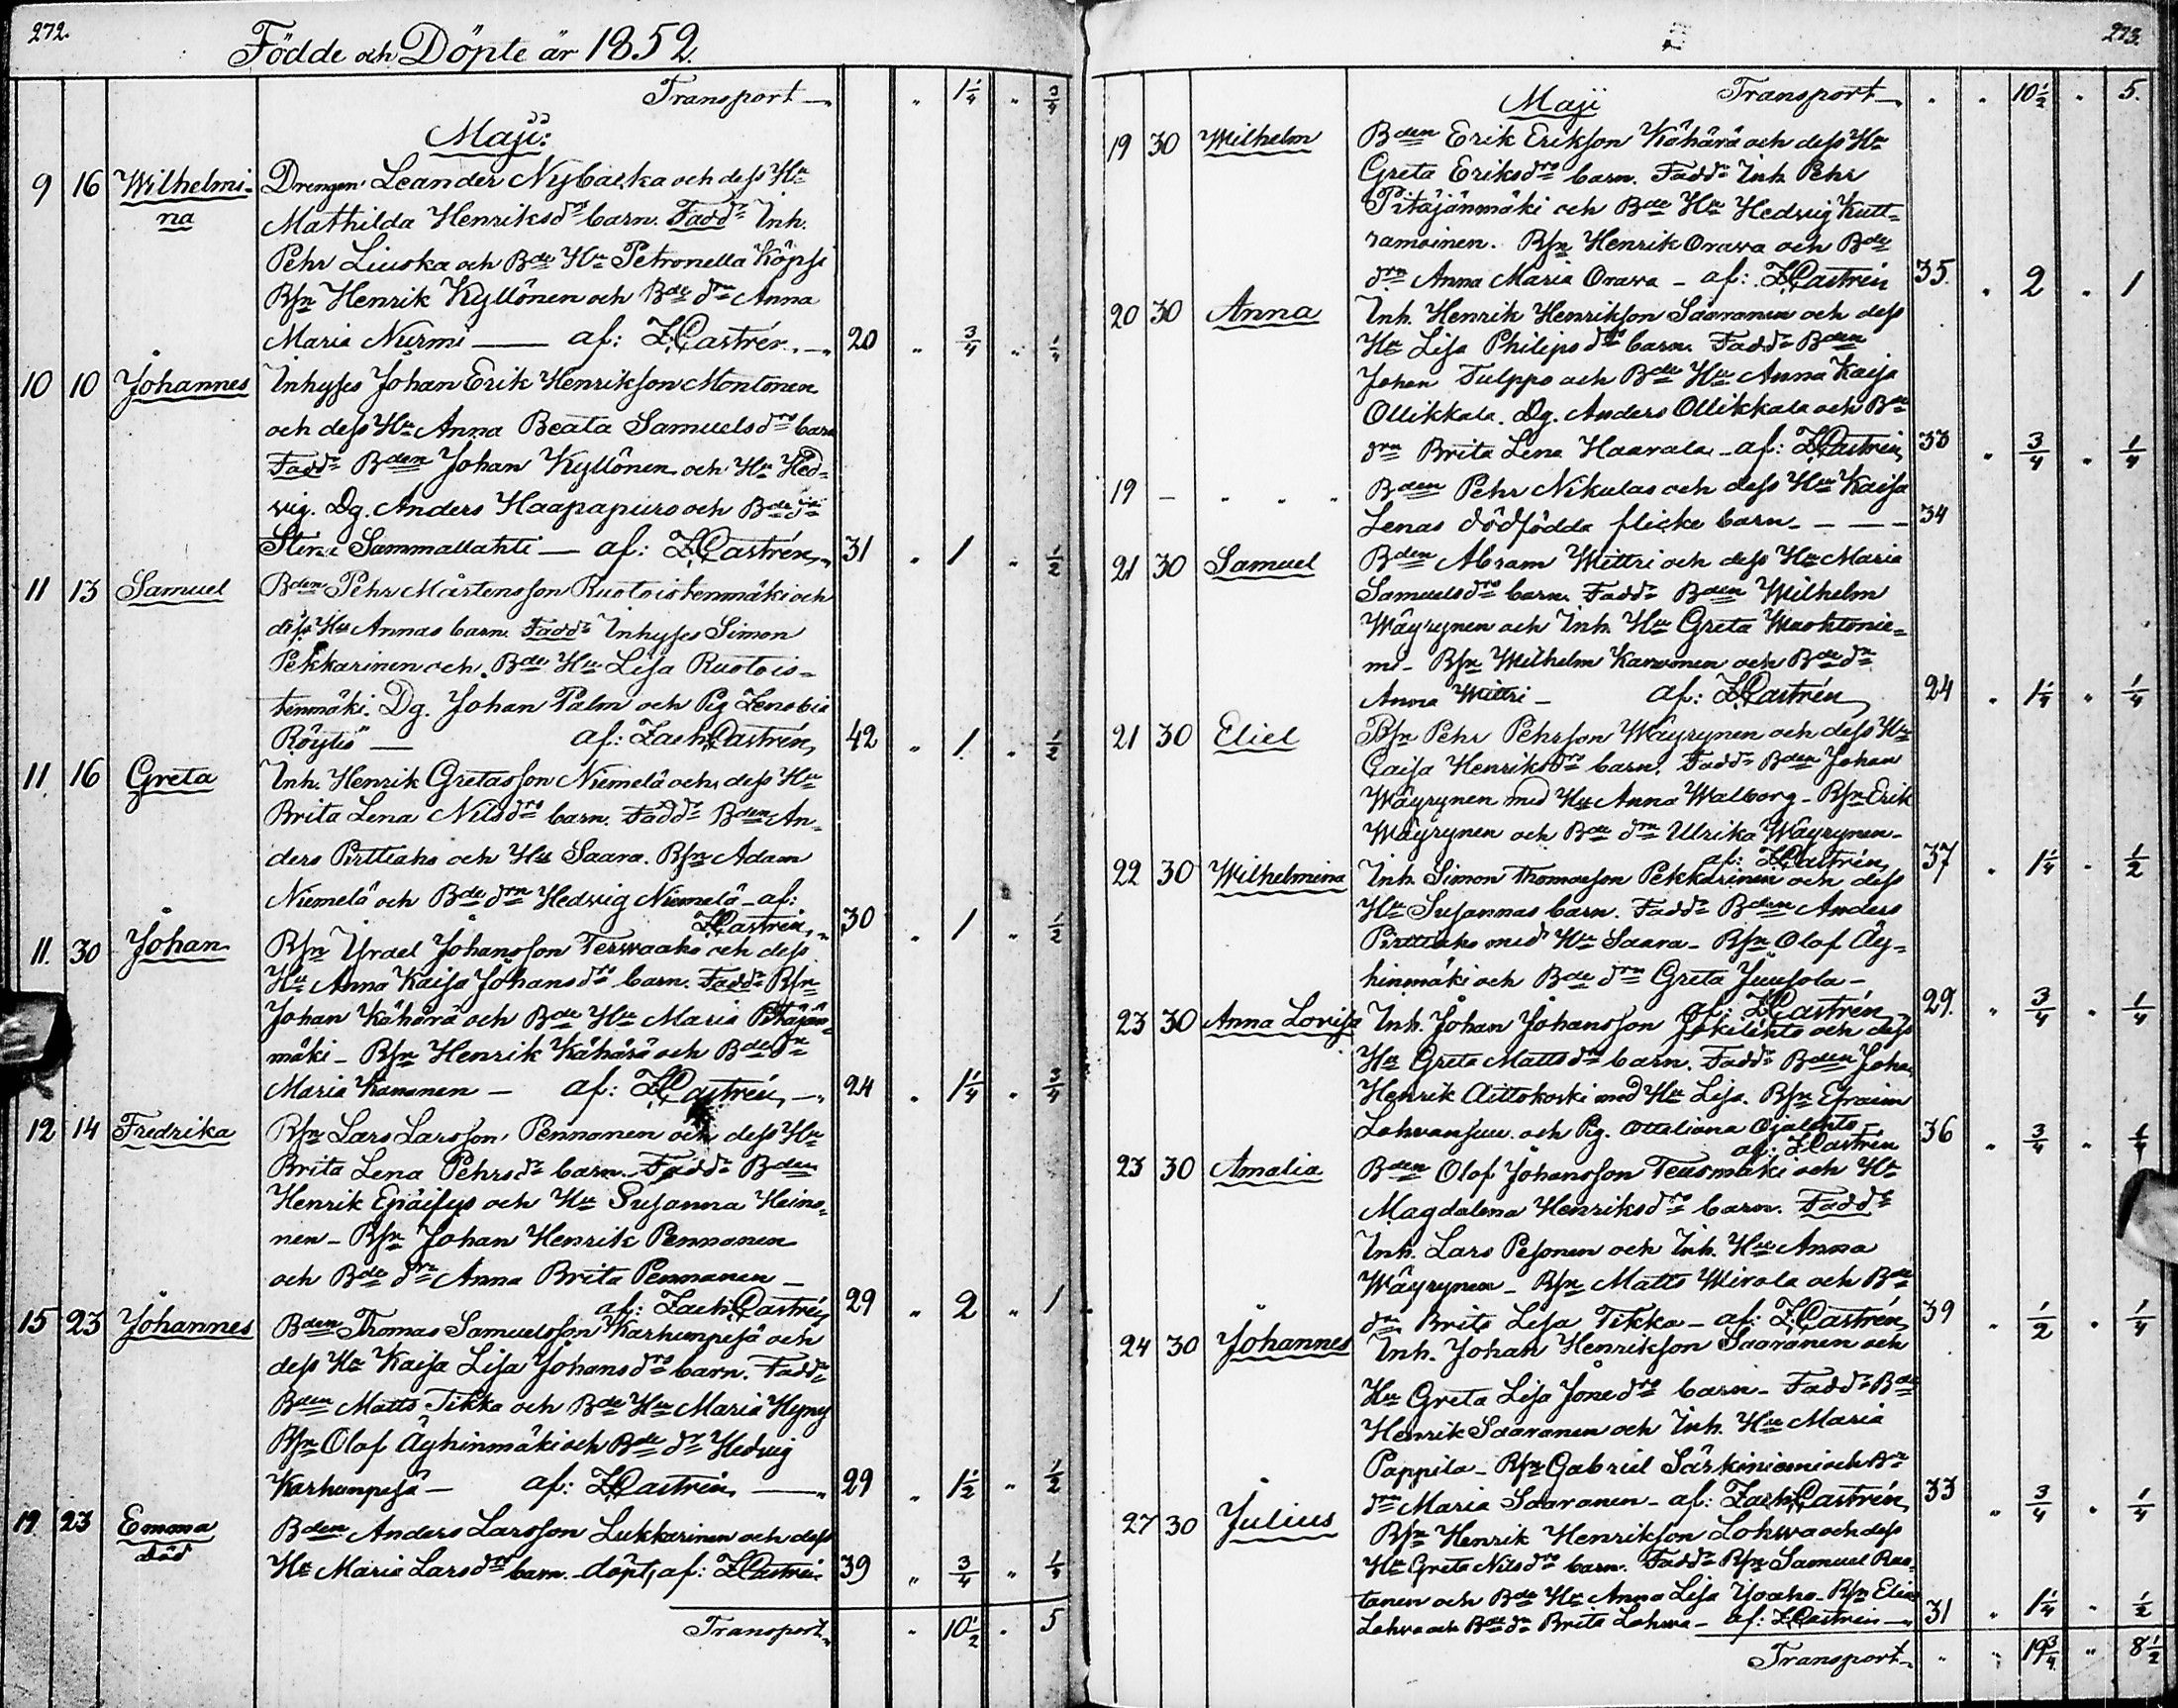 272.
Födde och Döpte år 1852.
Transport — " 1 1/4 " 3/4
Maji:
9 16 Wilhelmi- Drengen Leander Nybacka och dess Hu
na Mathilda Henriksdrs barn. Faddr Inh.
Pehr Liuska och Bde Hu Petronella Köpsi
Bsn Henrik Kyllönen och Bde drn Anna
Maria Nurmi — af: Z. Castrén. — 20 " 3/4 " 1/4
10 10 Johannes Inhyses Johan Erik Henrikson Montonen
och dess Hu Anna Beata Samuelsdrs barn
Faddr Bden Johan Kyllönen och Hu Hed-
vig. Dg. Anders Haapapuro och Bde drn
Stina Sammallahti — af: Z. Castrén, 31 " 1 " 1/2
11 13 Samuel Bden Pehr Mårtensson Ruotoistenmäki och
dess Hu Annas barn. Faddr Inhyses Simon
Pekkarinen och Bde Hu Lisa Ruotois-
tenmäki. Dg. Johan Palm och Pig Zenobia
Röytiö — af: Zach. Castrén, 42 " 1. " 1/2
11. 16 Greta Inh. Henrik Gretasson Niemelä och dess Hu
Brita Lena Nilsdrs barn. Faddr Bden An-
ders Pirttiaho och Hu Saara. Bsn Adam
Niemelä och Bde drn Hedvig Niemelä - af:
Z. Castrén, 30 " 1 " 1/2
11. 30 Johan Bsn Israel Johansson Terwaaho och dess
Hu Anna Kaisa Johansdrs barn. Faddr Bsn
Johan Kähärä och Bde Hu Maria Pitäjän-
mäki - Bsn Henrik Kähärä och Bde drn
Maria Kananen — af: Z. Castrén, — 24 " 1 1/4 " 3/4
12 14 Fredrika Bsn Lars Larsson Pennanen och dess Hu
Brita Lena Pehrsdr barn. Faddr Bden
Henrik och Hu Susanna Heino-
nen - Bsn Johan Henrik Pennanen
och Bde drn Anna Brita Pennanen —
af: Zach. Castrén, 29 " 2 " 1
15 23 Johannes Bden Thomas Samuelsson Karhunpesä och
dess Hu Kaisa Lisa Johansdrs barn. Faddr
Bden Matts Tikka och Bde Hu Maria Hyny
Bsn Olof Äyhinmäki och Bde dr Hedvig
Karhunpesä — af: Z. Castrén, — 29 " 1 1/2 " 1/2
19 23 Emma Bden Anders Larsson Lukkarinen och dess
död Hu Maria Larsdrs barn. döpt, af: Z. Castrén 39 " 3/4 " 1/4
Transport " 10 1/2 " 5
273.
Maji Transport — " " 10 1/2 " 5.
19 30 Wilhelm Bden Erik Erikson Kähärä och dess Hu
Greta Eriksdrs barn. Faddr Inh. Pehr
Pitäjänmäki och Bde Hu Hedvig Kutt-
ramoinen. Bsn Henrik Orava och Bde
drn Anna Maria Orava - af: Z. Castrén 35. " 2 " 1
20 30 Anna Inh. Henrik Henrikson Saaranen och dess
Hu Lisa Philipsdrs barn. Faddr Bden
Johan Tulppo och Bde Hu Anna Kaisa
Ollikkala. Dg. Anders Ollikkala och Bde
drn Brita Lena Haarala, - af: Z. Castrén, 33 " 3/4 " 1/4
19 — " " " Bden Pehr Nikulas och dess Hu Kaisa
Lenas dödfödda flicke barn. - — — 34
21 30 Samuel Bden Abram Wittri och dess Hu Maria
Samuelsdrs barn. Faddr Bden Wilhelm
Wäyrynen och Inh. Hu Greta Wuohtonie-
mi - Bsn Wilhelm Karvonen och Bde drn
Anna Wittri — af: Z. Castrén 24 " 1 1/4 " 1/4
21 30 Eliel Bsn Pehr Pehrsson Wäyrynen och dess Hu
Caisa Henriksdrs barn. Faddr Bden Johan
Wäyrynen med Hu Anna Walborg - Bsn Erik
Wäyrynen och Bde drn Ulrika Wäyrynen -
af: Z. Castrén, 37 " 1 1/4 " 1/2
22 30 Wilhelmina Inh. Simon Thomasson Pekkarinen och dess
Hu Susannas barn. Faddr Bden Anders
Pirttiaho med Hu Saara - Bsn Olof Äy-
hinmäki och Bde drn Greta Juusola —
af: Z. Castrén 29. " 3/4 " 1/4
23 30 Anna Lovisa Inh. Johan Johansson Jokilehto och dess
Hu Greta Mattsdrs barn. Faddr Bden Johan
Henrik Aittokoski med Hu Lisa. Bsn Efraim
Lahvansuu och Pig. Ottaliana Ojalehto
af: Z. Castrén 36 " 3/4 " 1/4
23 30 Amalia Bden Olof Johansson Teusmäki och Hu
Magdalena Henriksdrs barn. Faddr
Inh. Lars Pesonen och Inh. Hu Anna
Wäyrynen - Bsn Matts Wirola och Bde
drn Brita Lisa Tikka - af: Z. Castrén, 39 " 1/2 " 1/4
24 30 Johannes Inh. Johan Henrikson Saaranen och
Hu Greta Lisa Jonedrs barn - Faddr Bde
Henrik Saaranen och Inh. Hu Maria
Pappila - Bsn Gabriel Särkiniemi och Bde
drn Maria Saaranen - af: Zach. Castrén, 33 " 3/4 " 1/4
27 30 Julius Bsn Henrik Henrikson Lohwa och dess
Hu Greta Nilsdrs barn. Faddr Bsn Samuel Ras-
tanen och Bde Hu Anna Lisa Yoaho - Bsn Elias
Lohwa och Bde dr Brita Lohwa - af: Z. Castrén — 31 " 1 1/4 " 1/2
Transport — " " 19 3/4 " 8 1/2